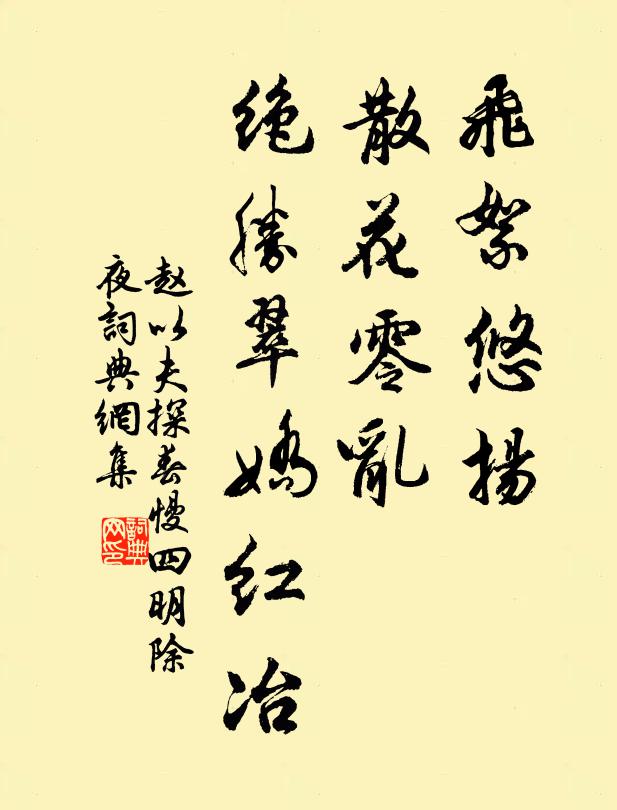 飛絮悠揚
散花零亂
绝勝翠嬌紅冶
赵以夫探春慢四明除
夜詞典網集
詞典网印